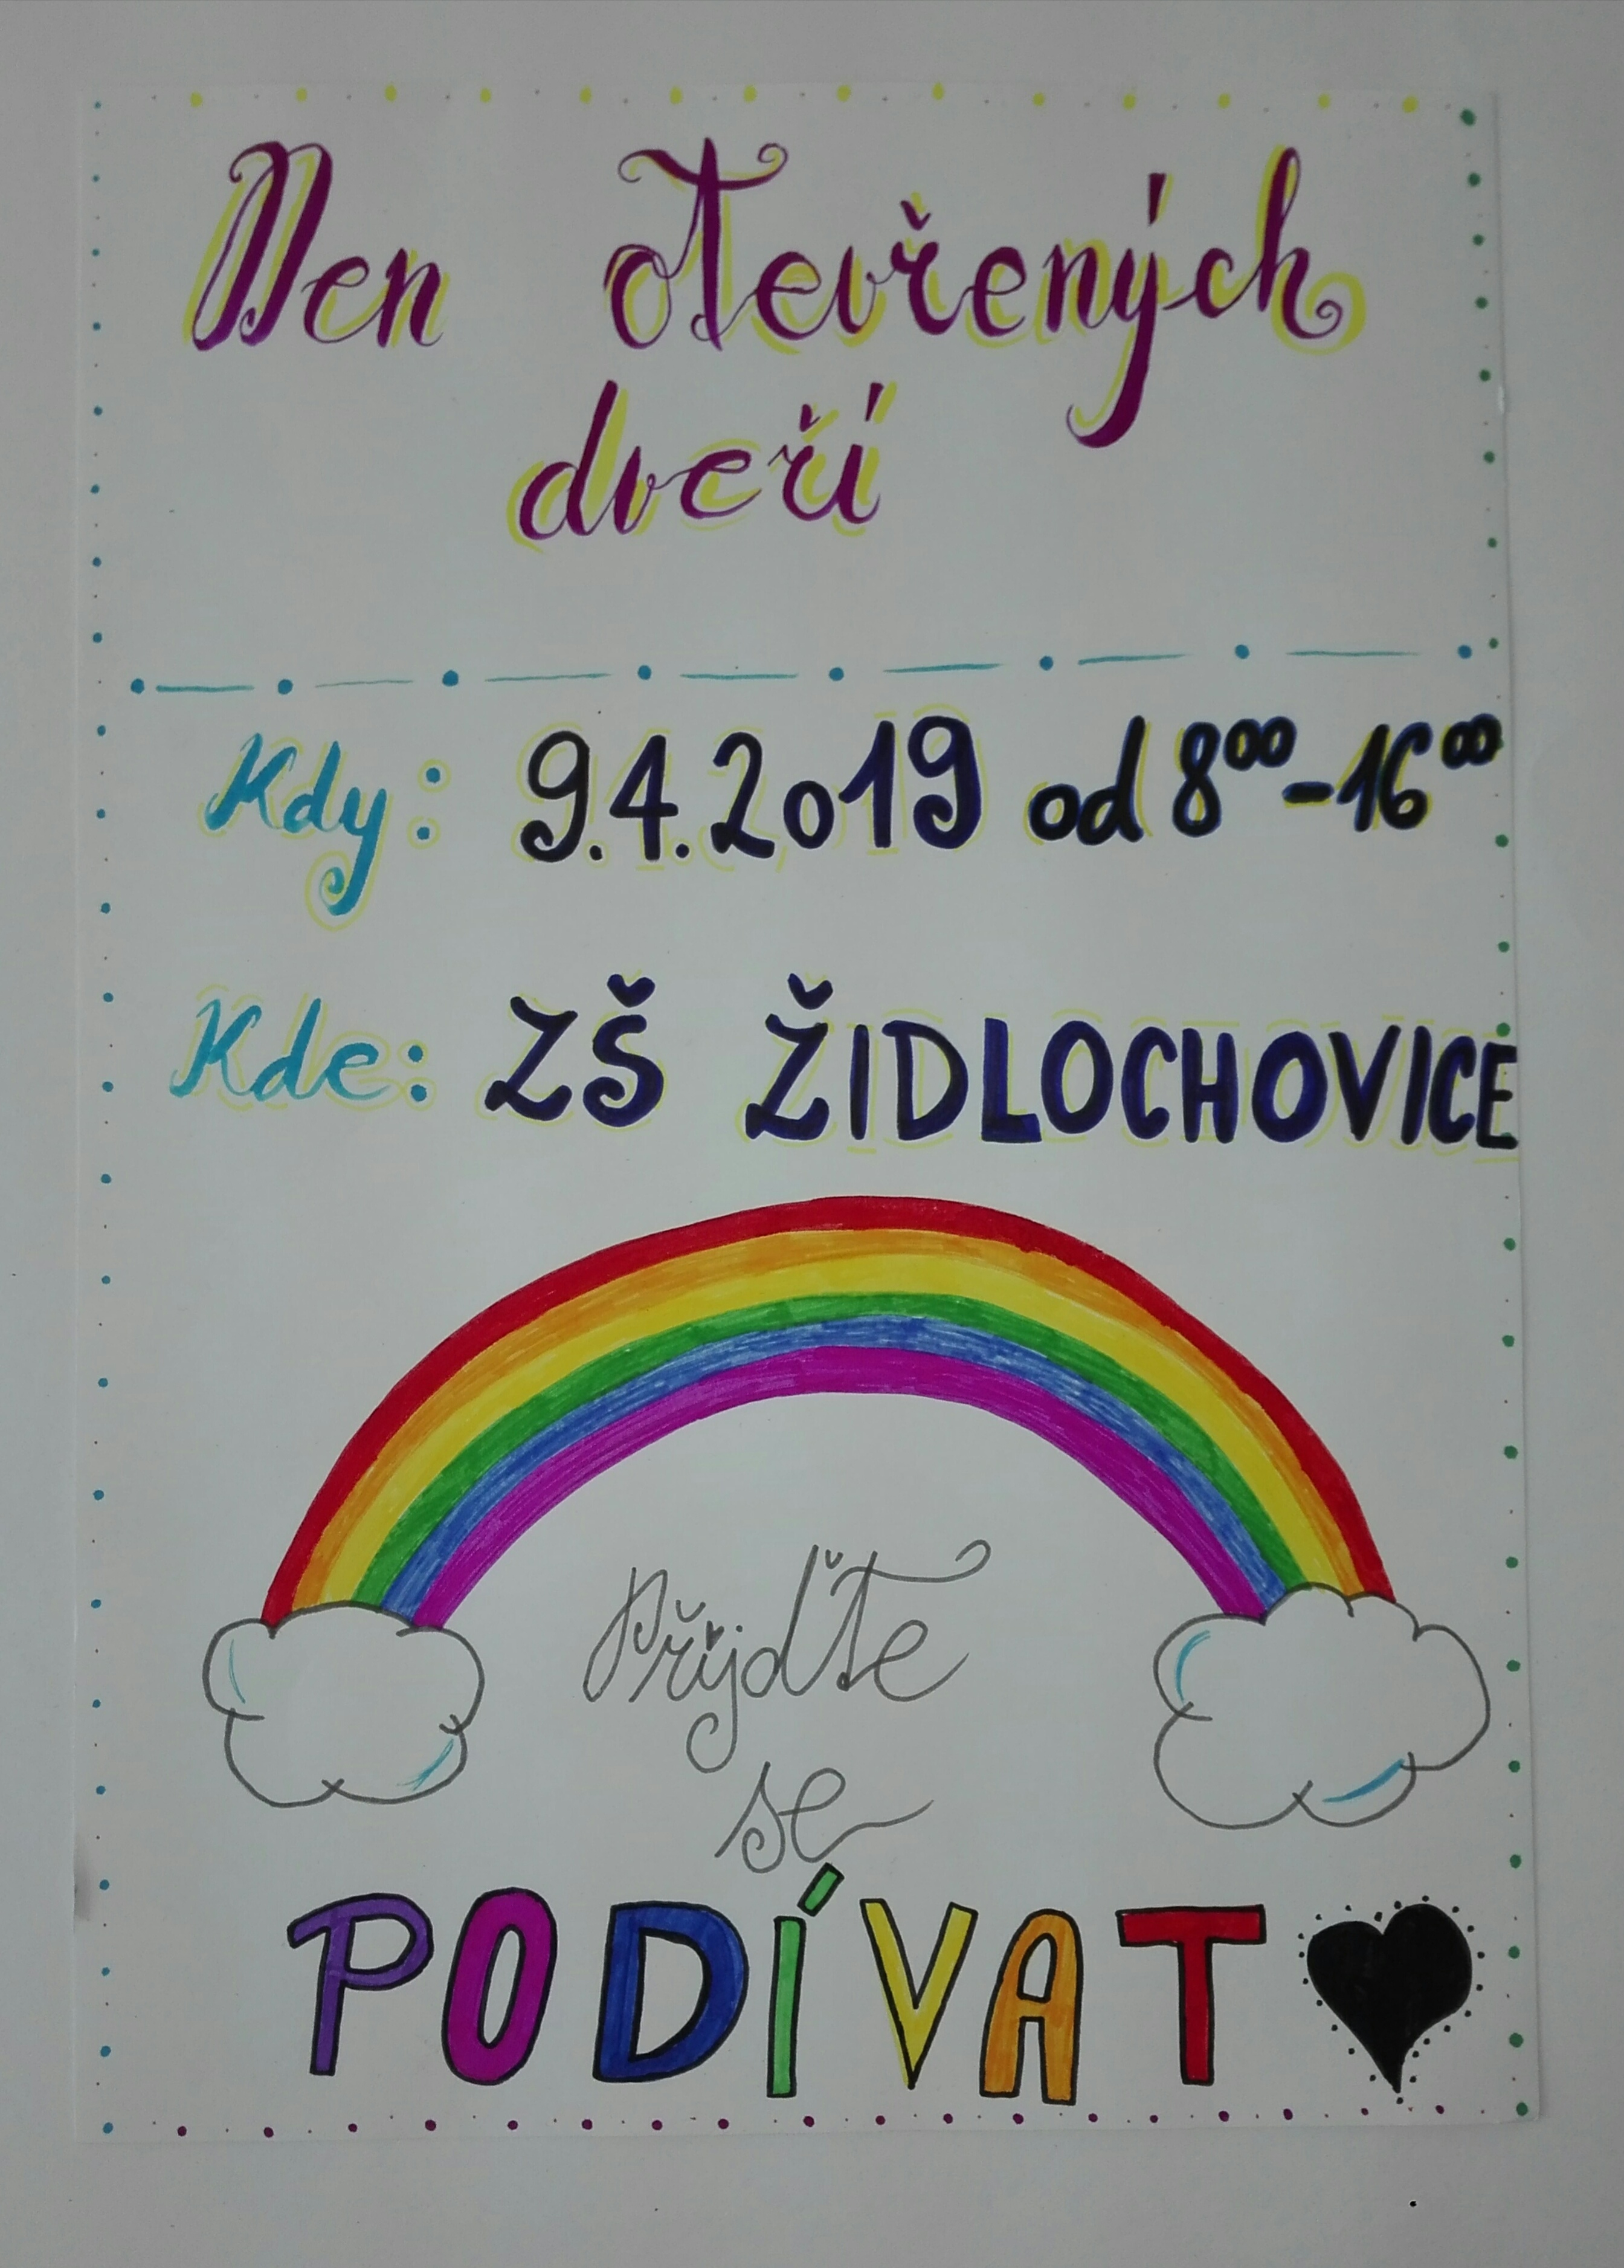 Den otevřených
dveří
Kdy: 9.4.2019 od 8⁰⁰-16⁰⁰
Kde: ZŠ ŽIDLOCHOVICE
Přijďte
se
PODÍVAT